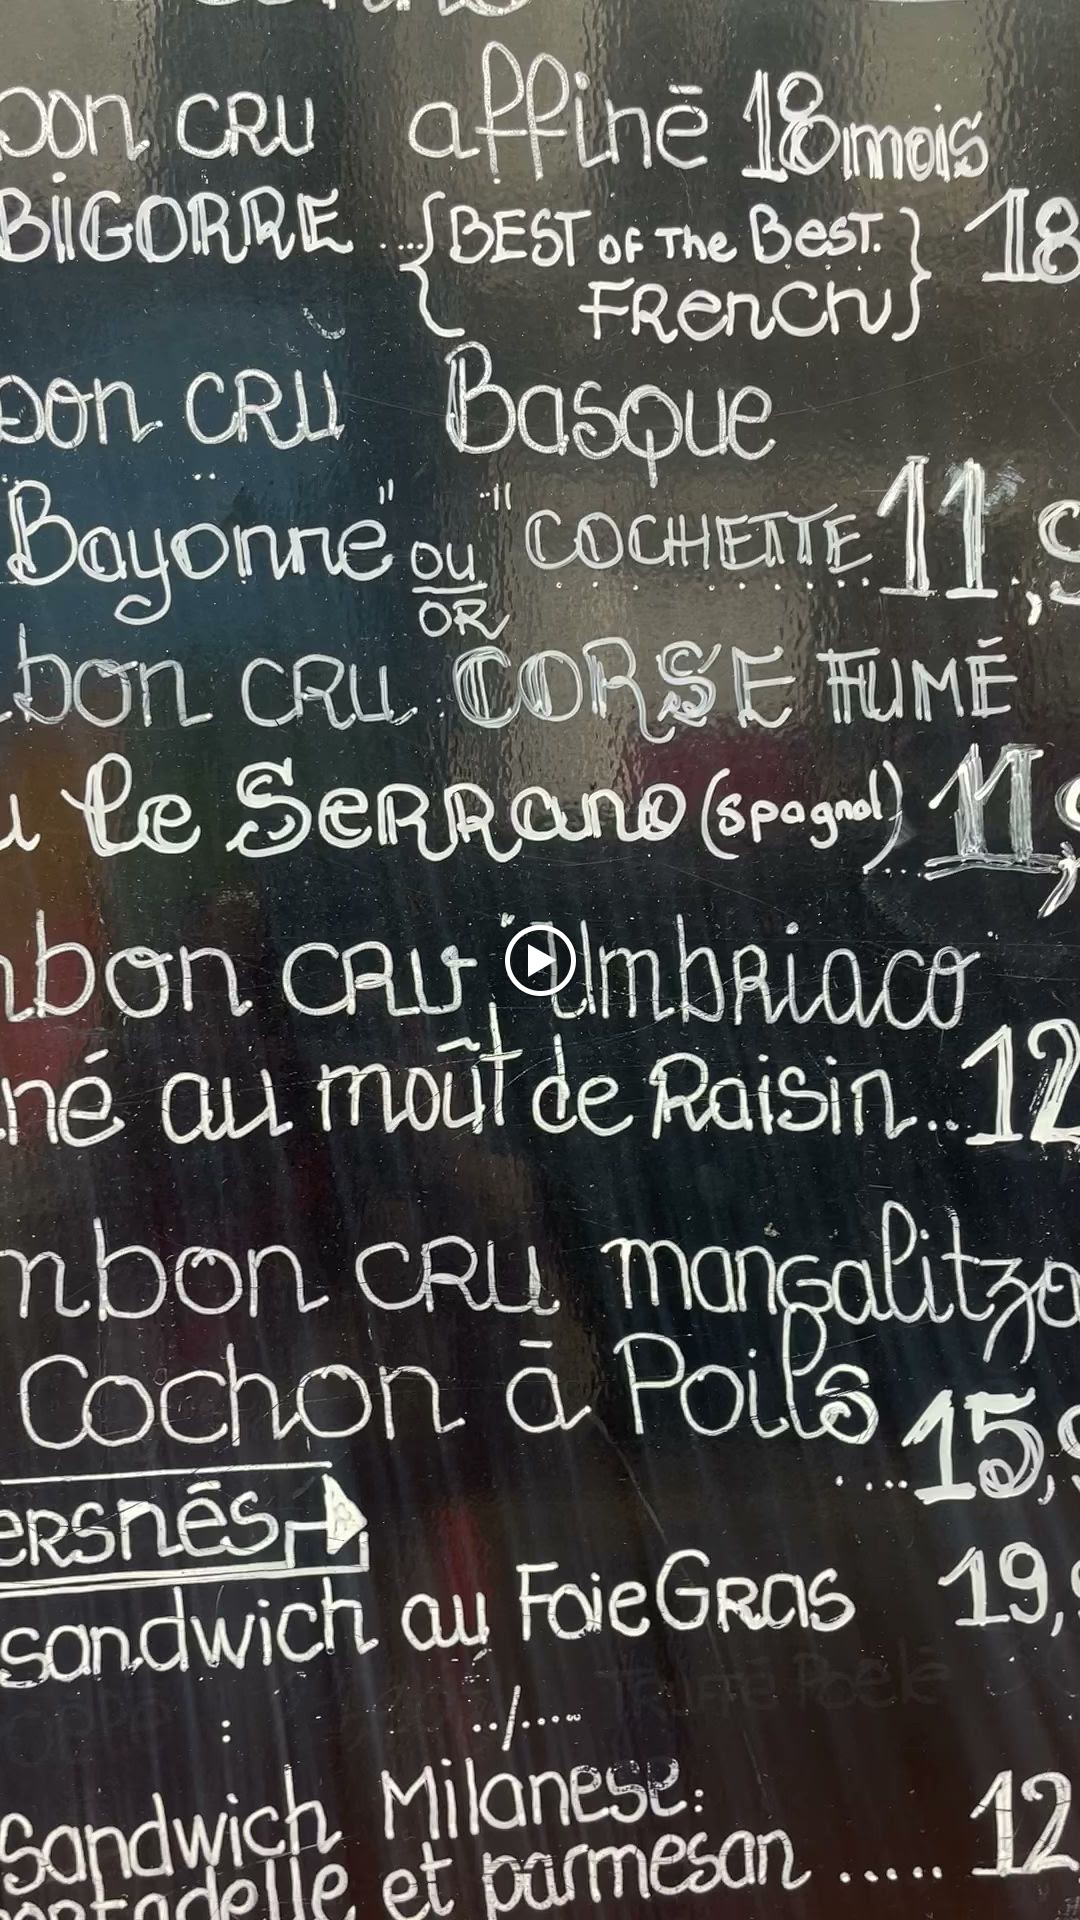 CRU affiné 18 mois
BIGORRE ....{BEST OF The BesT. 18
FRenCh}
CRU Basque
Bayonne" ou "COCHETTE 11,
OR
bon CRU CORSE FUMÉ
le SeRRano (spagnol) 11,
bon CRU "UmbRiaco
né au moût de Raisin.. 12
mbon CRU mangalitza
Cochon à Poils
.... 15,
eRsnés
Sandwich au Foie GRas 19,
Sandwich Milanese:
et parmesan ..... 12